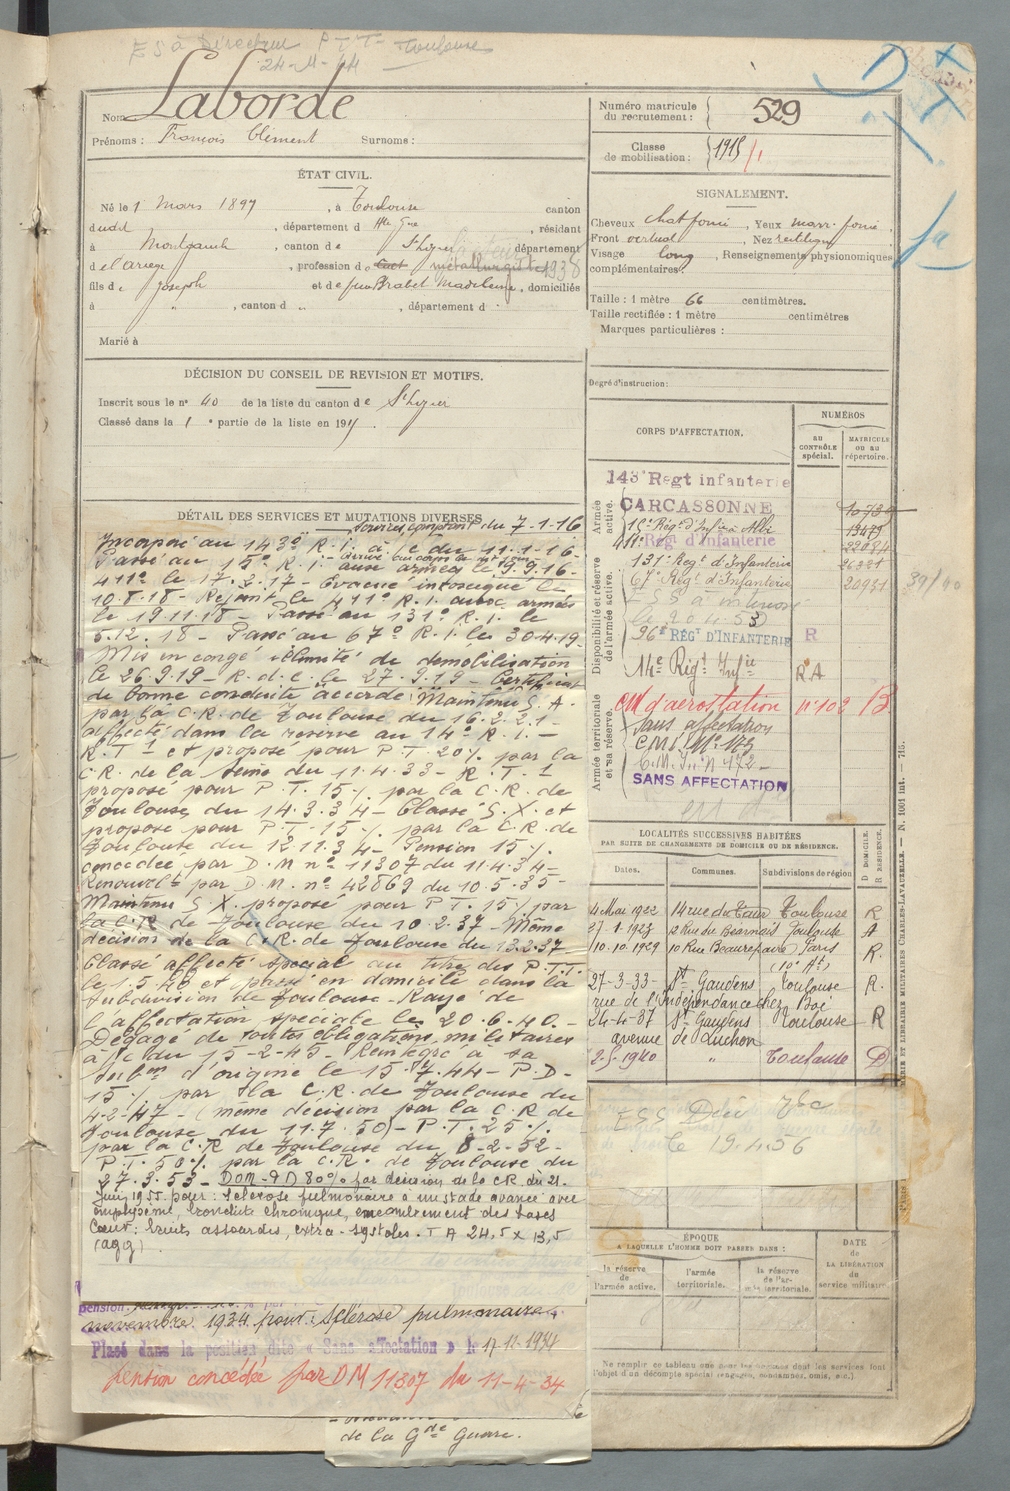 ES à Directeur P.T.T. Toulouse
24-11-44
Nom Laborde
Prénoms : François Clément Surnoms :
Numéro matricule du recrutement : 529
Classe de mobilisation : 1915/1
ÉTAT CIVIL.
Né le 1 Mars 1897, à Toulouse canton
dudit, département d Hte Gne, résidant
à, canton de St Lizier département
de l'Ariège, profession de métallurgiste 1938
fils de Joseph et de feue Brabet Madeleine, domiciliés
à ", canton d ", département d
Marié à
SIGNALEMENT.
Cheveux chat foncé, Yeux marr. foncé,
Front vertical, Nez rectiligne
Visage long, Renseignements physionomiques
complémentaires.
Taille : 1 mètre 66 centimètres.
Taille rectifiée : 1 mètre centimètres
Marques particulières :
Degré d'instruction :
DÉCISION DU CONSEIL DE REVISION ET MOTIFS.
Inscrit sous le n° 40 de la liste du canton de St Lizier
Classé dans la 1e partie de la liste en 191
DÉTAIL DES SERVICES ET MUTATIONS DIVERSES
services comptant du 7-1-16
Incorporé au 143e R.I. à c. du 11-1-16.
Passé au 15e R.I. aux armées le 9.9.16.
411e le 17.2.17 - Evacué intoxiqué le
10.8.18 - Rejoint le 411e R.I. aux armées
le 19.11.18 - Passé au 131e R.I. le
6.12.18 - Passé au 67e R.I. le 30.4.19.
Mis en congé illimité de démobilisation
le 26.9.19 - R.d.c. le 27.9.19 - Certificat
de bonne conduite accordé. Maintenu S.A.
par la C.R. de Toulouse du 16.2.21-
affecté dans la réserve au 14e R.I. -
R.T 1 et proposé pour P.T. 20% par la
C.R. de la Seine du 11.4.33 - R.T. 1
proposé pour P.T. 15% par la C.R. de
Toulouse, du 14.3.34 - Classé S.X. et
proposé pour P.T. 15% par la C.R. de
Toulouse du 12.11.34 - Pension 15%
concédée par D.M n° 11307 du 11.4.34 -
Renouvelt par D.M. n° 42869 du 10.5.35 -
Maintenu S.X. proposé pour P.T. 15% par
la C.R de Toulouse du 10.2.37 - Même
décision de la C.R. de Toulouse du 12.2.37
Classé affecté spécial au titre des P.T.T.
le 1.5.40 et passé en domicile dans la
subdivision de Toulouse - Rayé de
l'affectation spéciale le 20.6.40. -
Dégagé de toutes obligations militaires
à c. du 15-2-45 - Réintégré à sa
subon d'origine le 15.7.44 - P.D -
15% par la C.R. de Toulouse du
4-2-47 - (même décision par la C.R de
Toulouse du 11.7.50) - P.T. 25%
par la C.R de Toulouse du 8-2-52 -
P.T. 50% par la C.R. de Toulouse du
27.3.53 - 80% par décision de la CR du 21-
Juin 1955 pour : Sclérose pulmonaire à un stade avancé avec
emphysème, bronchite chronique, encombrement des bases
Cœur : bruits assourdis, extra-systoles. T A 24,5 x 13,5
(agg)
pension.
novembre 1934 pour : Sclérose pulmonaire.
Placé dans la position dite « Sans affectation » le 17-12-1934
pension concédée par DM 11307 du 11-4-34
de la Gde Guerre.
CORPS D'AFFECTATION.
NUMÉROS
AU CONTRÔLE spécial.
MATRICULE OU AU répertoire.
Armée active.
143e Regt infanterie
CARCASSONNE
15e Régt d'Infie à Albi 13479
411e Regt d'Infanterie
Disponibilité et réserve de l'armée active.
131e Régt d'Infanterie
67e Régt d'Infanterie 20931
le 20.4.53
96e REGT D'INFANTERIE R
14e Régt Infie RA
Armée territoriale et sa réserve.
CM d'aérostation n° 102 B
Sans affectation
CMI N° 173
C.M.I. N° 172
SANS AFFECTATION
LOCALITÉS SUCCESSIVES HABITÉES
PAR SUITE DE CHANGEMENTS DE DOMICILE OU DE RÉSIDENCE.
Dates. Communes. Subdivisions de région D DOMICILE. R RÉSIDENCE.
4 Mai 1922 14 rue du Taur Toulouse R
27-1-1923 12 Rue du Béarnais Toulouse A
10.10.1929 10 Rue Beaurepaire Paris R.
(10e Att)
27-3-33 - St Gaudens Toulouse R.
rue de l'Indépendance chez Boé
24-4-37 St Gaudens Toulouse R
avenue de Luchon
2-5-1940 " Toulouse D
ESS
le 19.4.56
ÉPOQUE
A LAQUELLE L'HOMME DOIT PASSER DANS :
la réserve de l'armée active.
l'armée territoriale.
la réserve de l'armée territoriale.
DATE de LA LIBÉRATION du service militaire.
Ne remplir ce tableau que pour les hommes dont les services font
l'objet d'un décompte spécial (engagés, condamnés, omis, etc.)
CHARLES-LAVAUZELLE. — N. 1001 int. — 715.